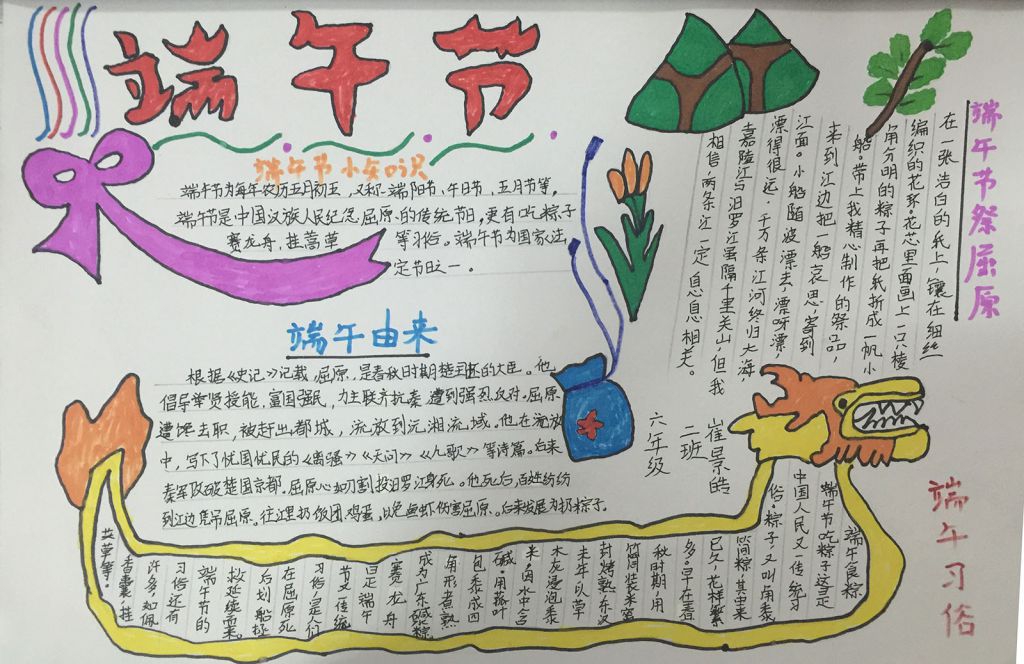 端午节
端午节小知识
端午节为每年农历五月初五，又称端阳节、午日节、五月节等。
端午节是中国汉族人民纪念屈原的传统节日，更有吃粽子
赛龙舟，挂蒿草
等习俗。端午节为国家法
定节日之一。
端午由来
根据《史记》记载，屈原，是春秋时期楚王的大臣。他
倡导举贤授能，富国强民，力主联齐抗秦，遭到强烈反对。屈原
遭馋去职，被赶出都城，流放到沅湘流域。他在流放
中，写下了忧国忧民的《离骚》《天问》《九歌》等诗篇。后来
秦军攻破楚国京都，屈原心如刀割投汨罗江身死。他死后，百姓纷纷
到江边凭吊屈原。往江里扔饭团、鸡蛋，以免鱼虾伤害屈原。后来发展为扔粽子。
端午节祭屈原
在一张洁白的纸上，镶在细丝
编织的花环。花芯里面画上一只棱
角分明的粽子再把纸折成一帆小
船。带上我精心制作的祭品，
来到江边把一船哀思，寄到
江面。小船随波漂去，漂呀漂，
漂得很远，千万条江河终归大海，
嘉陵江与汨罗江虽隔千里关山，但我
相信，两条江一定息息相关。
六年级
二班
崔景皓
端午习俗
端午食粽
端午节吃粽子这是
中国人民又一传统习
俗。粽子，又叫角黍
筒粽。其由来
已久，花样繁
多。早在春
秋时期，用
筒装米密
封烤熟，东汉
末年，以草
木灰浸泡黍
米，因水中含
碱，用菰叶
包黍成四
角形，煮熟
成为广东碱粽
赛龙舟
曰是端午
节又传统
习俗，是人们
在屈原死
后划船拯
救延续而来。
端午节的
习俗还有
许多，如佩
香囊，挂
艾草等。